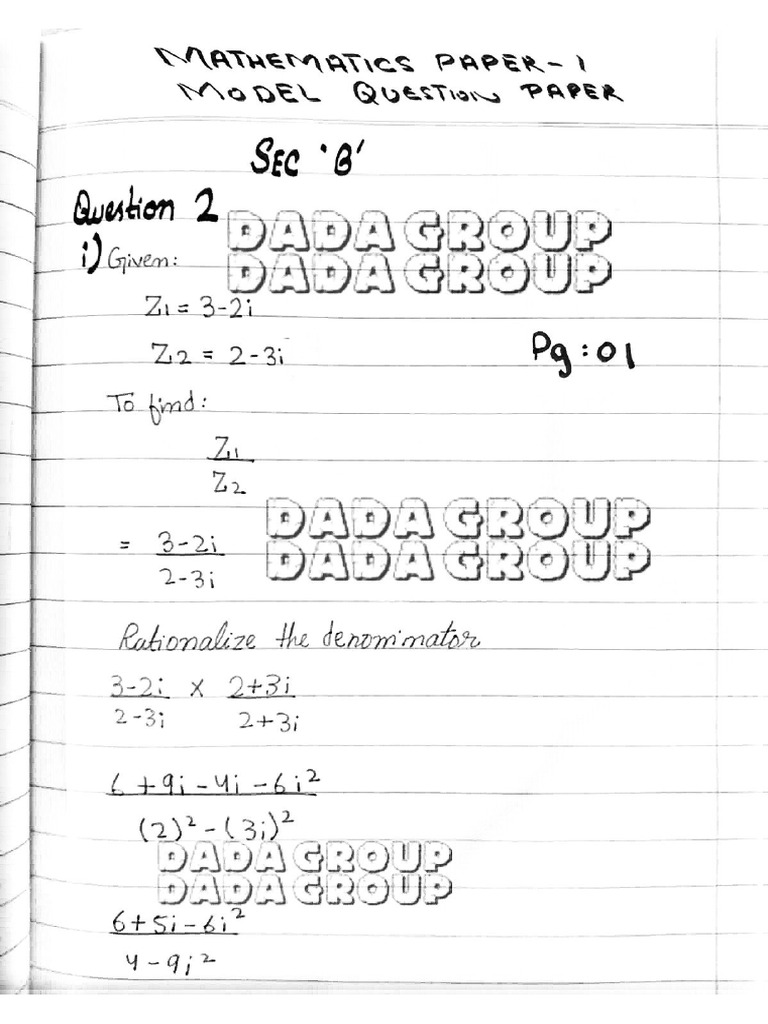 MATHEMATICS PAPER-1
MODEL QUESTION PAPER
SEC 'B'
Question 2
DADA GROUP
DADA GROUP
i) Given:
Z1 = 3-2i
Z2 = 2-3i
Pg:01
To find:
Z1
Z2
DADA GROUP
DADA GROUP
= 3-2i
2-3i
Rationalize the denominator
3-2i x 2+3i
2-3i 2+3i
6+9i-4i-6i²
(2)²-(3i)²
DADA GROUP
DADA GROUP
6+5i-6i²
4-9i²